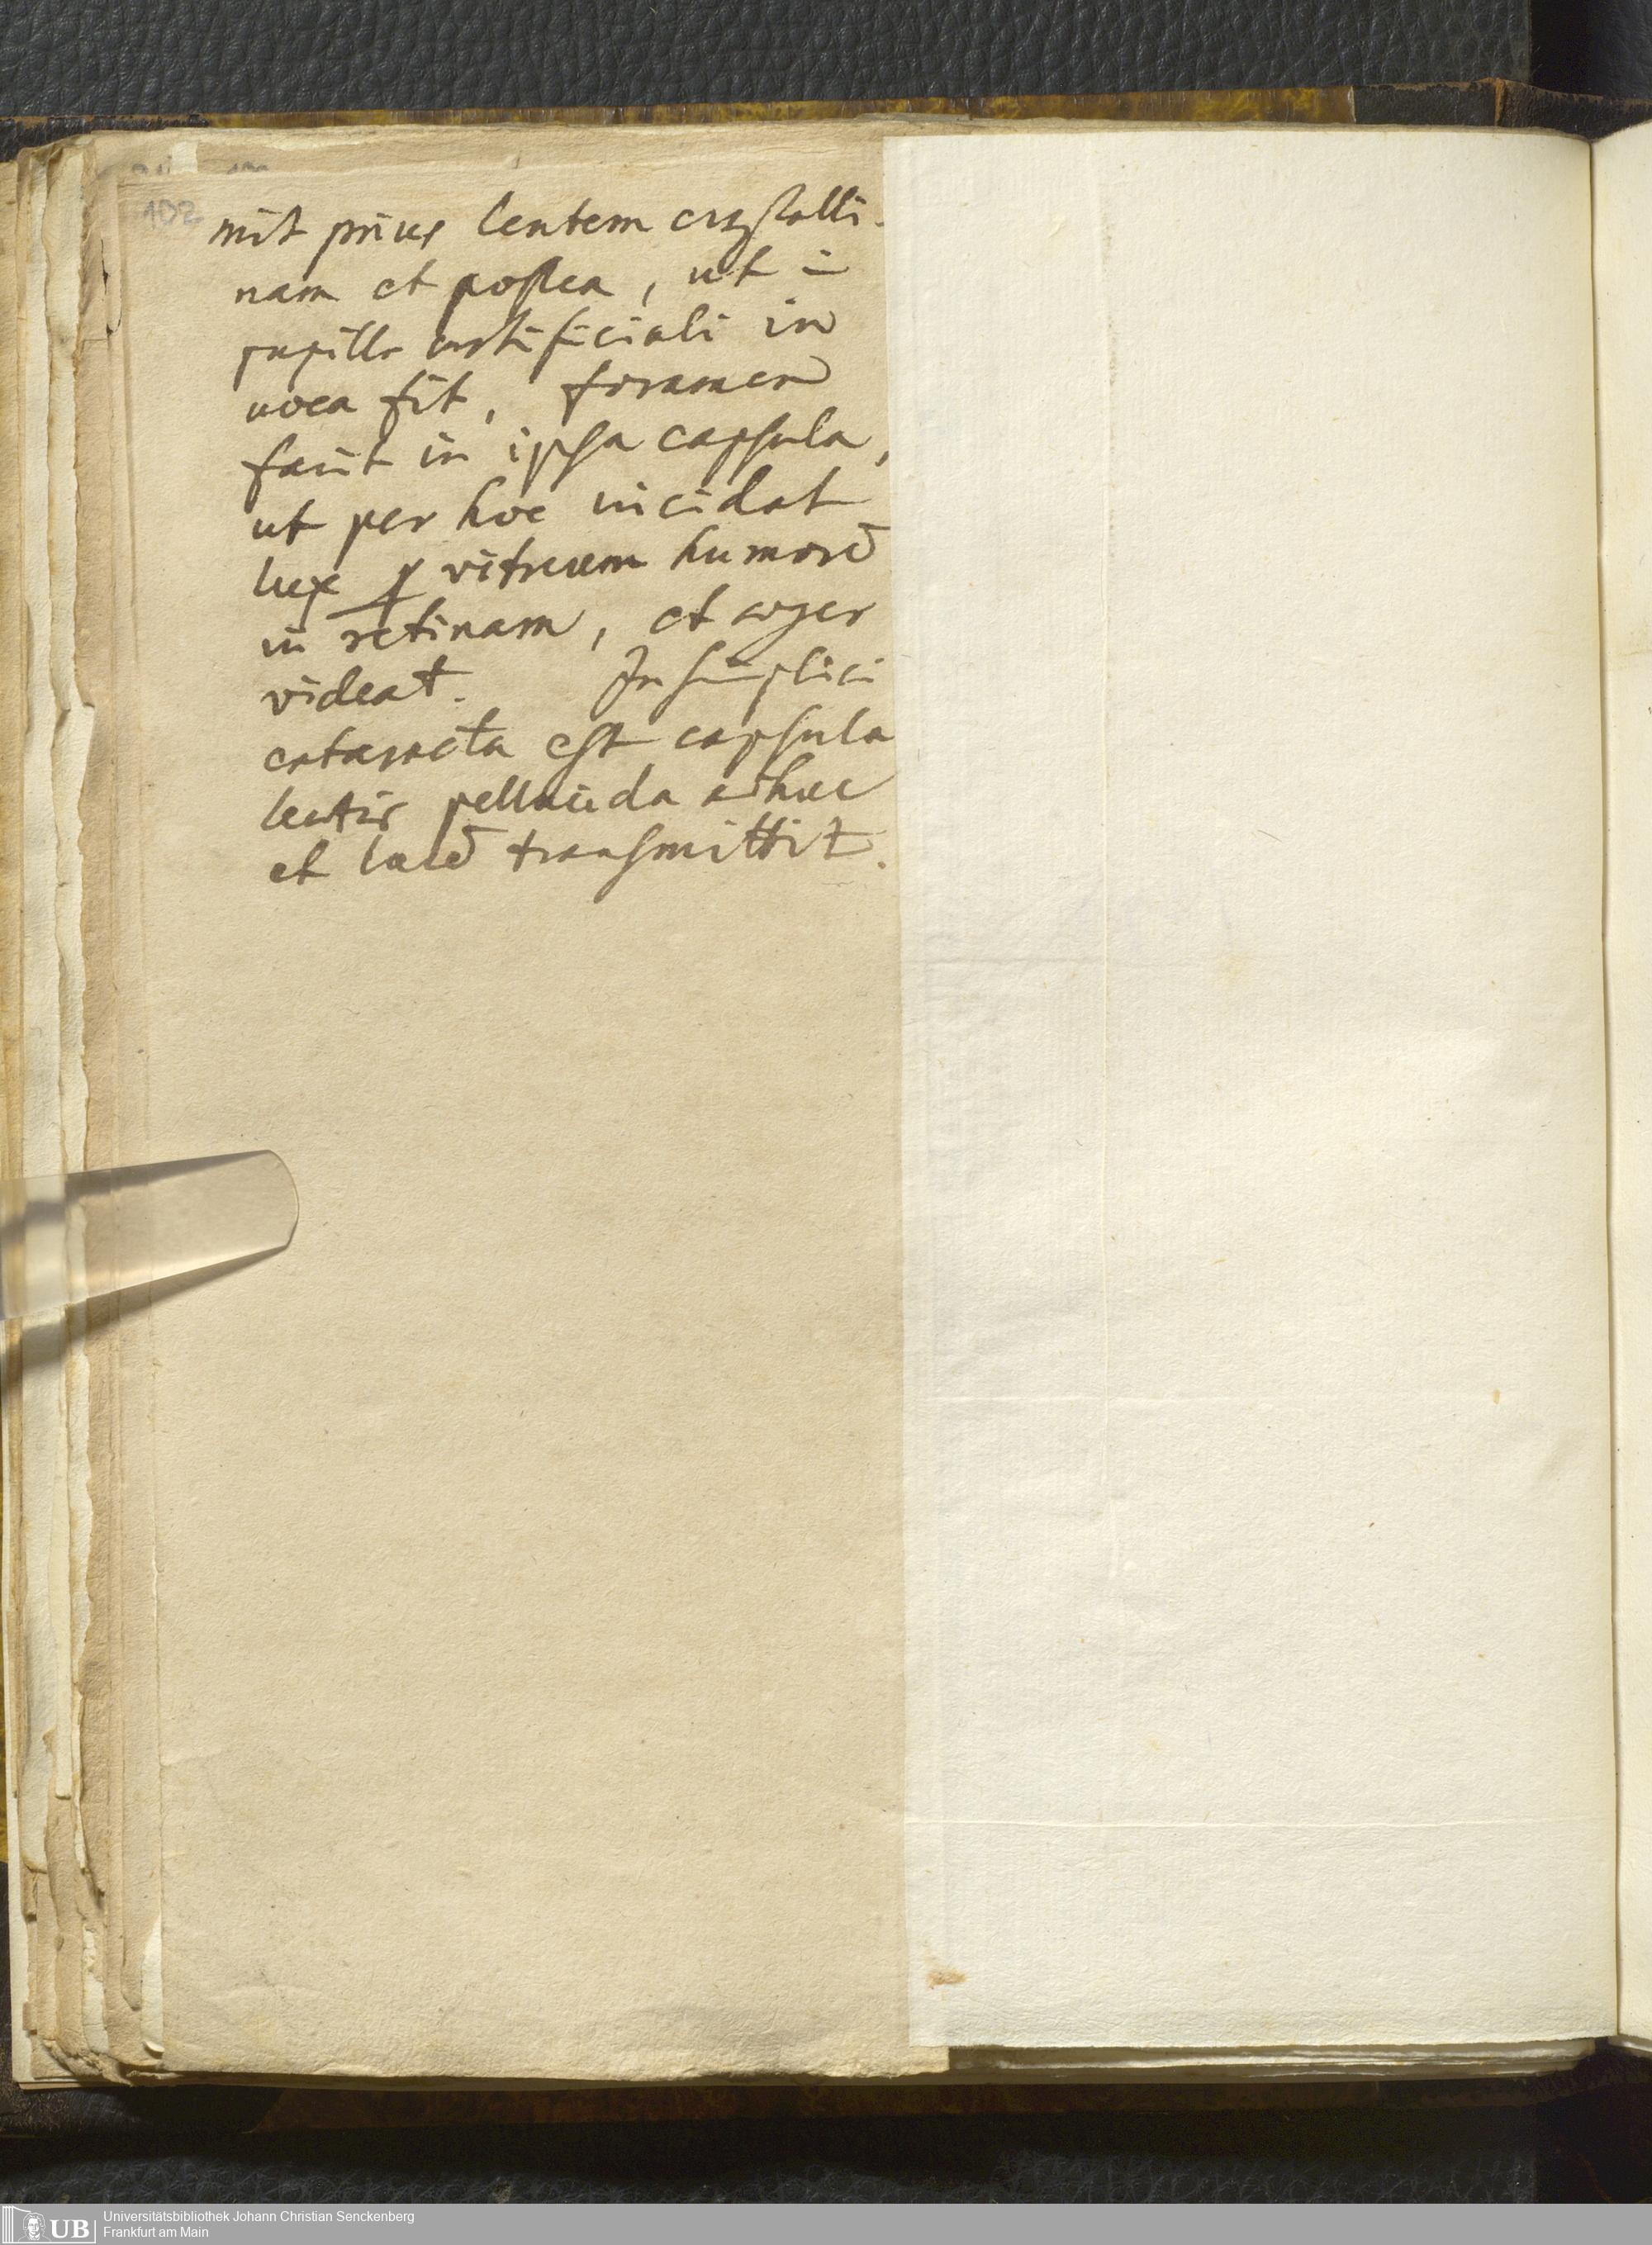 102
mit prius lentem crystalli-
nam et postea, ut in
pupilla artificiali in
uvea fit, foramen
facit in ipsa capsula,
ut per hoc incidat
lux p vitreum humorē
in retinam, et aeger
videat. In simplici
cataracta est capsula
lentis pellucida adhuc
et lucē transmittit.
UB Universitätsbibliothek Johann Christian Senckenberg
Frankfurt am Main